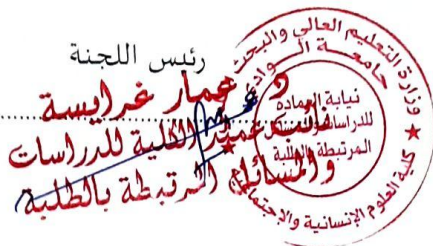 رئيس اللجنة
د/ عمار غرايسة
نائب عميد الكلية للدراسات
والمسائل المرتبطة بالطلبة
وزارة التعليم العالي والبحث
جامعة الوادي
نيابة العمادة
للدراسات
المرتبطة بالطلبة
كلية العلوم الإنسانية والإجتماعية